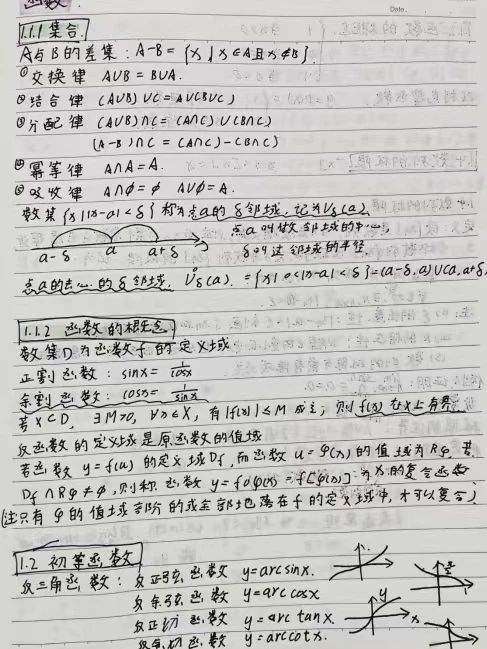 函数
Date.
1.1.1 集合.
A与B的差集: A-B={x | x∈A且x∉B}.
① 交换律 A∪B=B∪A.
② 结合律 (A∪B)∪C=A∪(B∪C)
③ 分配律 (A∪B)∩C=(A∩C)∪(B∩C)
(A-B)∩C=(A∩C)-(B∩C)
④ 幂等律 A∩A=A.
⑤ 吸收律 A∩φ=φ A∪φ=A.
数集{x||x-a|<δ}称为点a的δ邻域,记为Vδ(a).
点a叫做邻域的中心,
a-δ a a+δ δ叫这邻域的半径
点a的去心的δ邻域. V̊δ(a).={x|0<|x-a|<δ}=(a-δ,a)∪(a,a+δ)
1.1.2 函数的概念.
数集D为函数f的定义域
正割函数: sinx=1/cosx
余割函数: cosx=1/sinx
若X⊂D, ∃M>0, ∀x∈X, 有|f(x)|≤M成立,则f(x)在X上有界
反函数的定义域是原函数的值域
若函数y=f(u)的定义域Df,而函数u=φ(x)的值域为Rφ,若
Df∩Rφ≠φ,则称函数y=f∘φ(x)=f[φ(x)]为x的复合函数
(注只有φ的值域部分的或全部地落在f的定义域中,才可以复合)
1.2 初等函数
反三角函数: 反正弦函数 y=arcsinx.
反余弦函数 y=arccosx
反正切函数 y=arctanx.
反余切函数 y=arccotx.
y
x